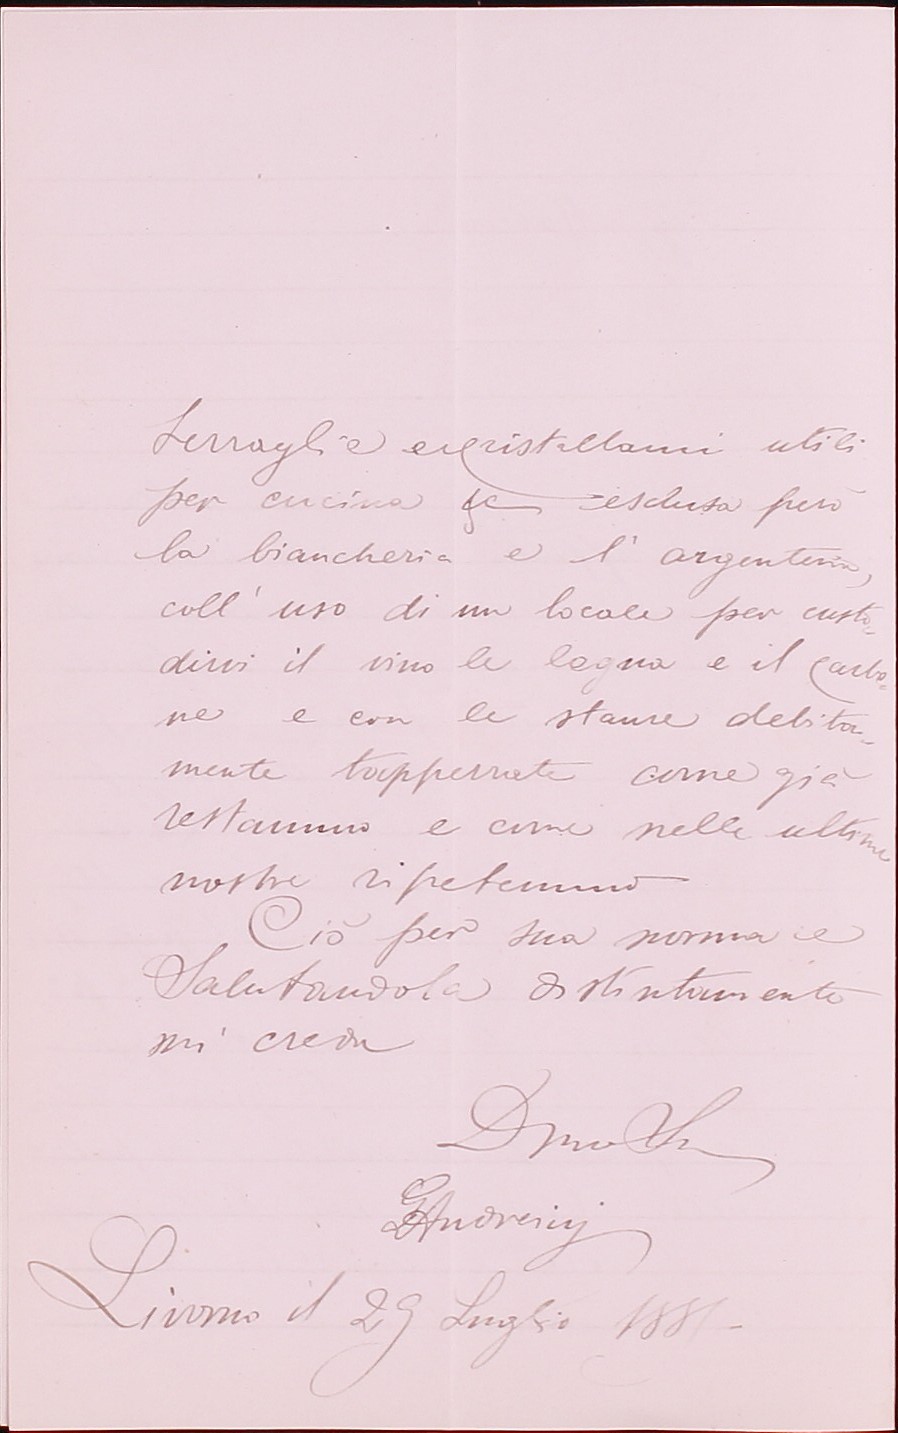 Terraglie e cristallami utili
per cucina &c = esclusa però
la biancheria e l'argenteria,
coll'uso di un locale per custo=
dirvi il vino le legna e il carbo=
ne e con le stanze debita=
mente tapperrate come già
restammo e come nelle ultime
nostre ripetemmo
Ciò per sua norma e
Salutandola distintamente
mi creda
Dmo
GAndreinj
Livorno il 29 Luglio 1881 -